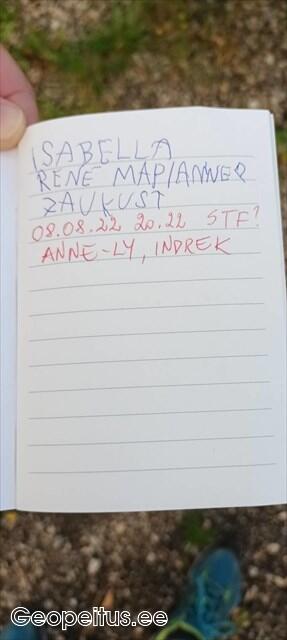 ISABELLA
RENE MAPIANNER
ZAUKUST
08.08.22 20.22 STF?
ANNE-LY, INDREK
Geopeitus.ee